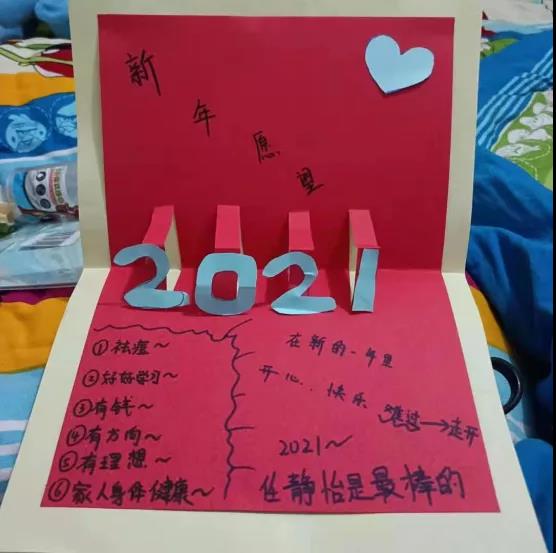 新年愿望
2021
①祛痘～
②好好学习～
③有钱～
④有方向～
⑤有理想～
⑥家人身体健康～
在新的一年里
开心..快乐 难过→走开
2021～
任静怡是最棒的